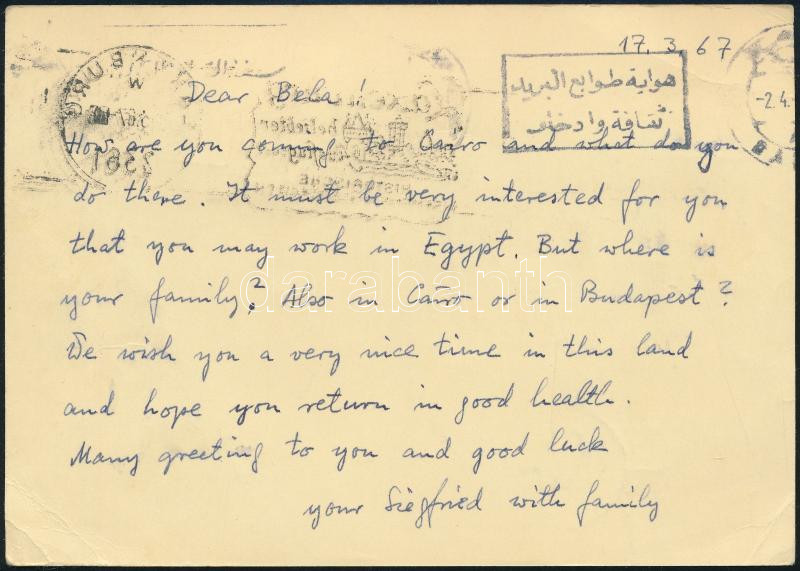 17. 3. 67
هواية طوابع البريد
ثقافة وادخار
-2.4.
Dear Bela!
How are you coming to Cairo and what do you
do there. It must be very interested for you
that you may work in Egypt. But where is
your family? Also in Cairo or in Budapest?
We wish you a very nice time in this land
and hope you return in good health.
Many greeting to you and good luck
your Siegfried with family
darabanth